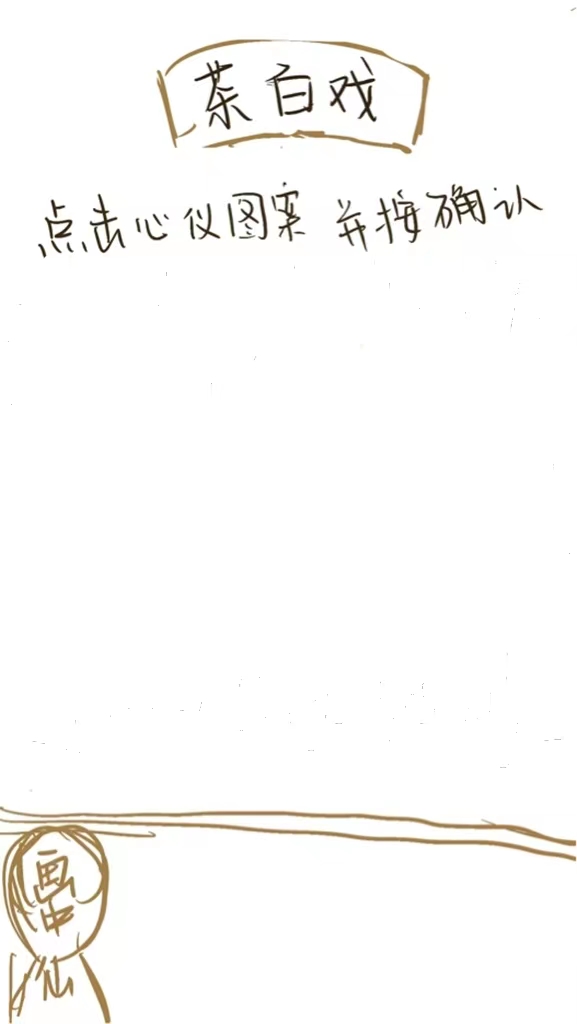 茶白戏
点击心仪图案 并按确认
画
中
仙